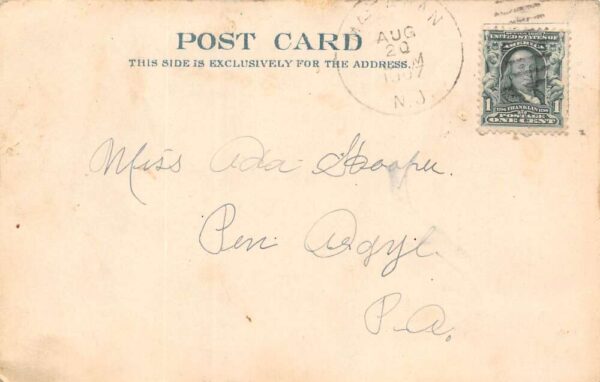 POST CARD
THIS SIDE IS EXCLUSIVELY FOR THE ADDRESS.
AUG
20
M
1907
N.J.
UNITED STATES OF
AMERICA
1 FRANKLIN 1
POSTAGE
ONE CENT
Miss Ada Hooper.
Pen Argyl.
P.A.